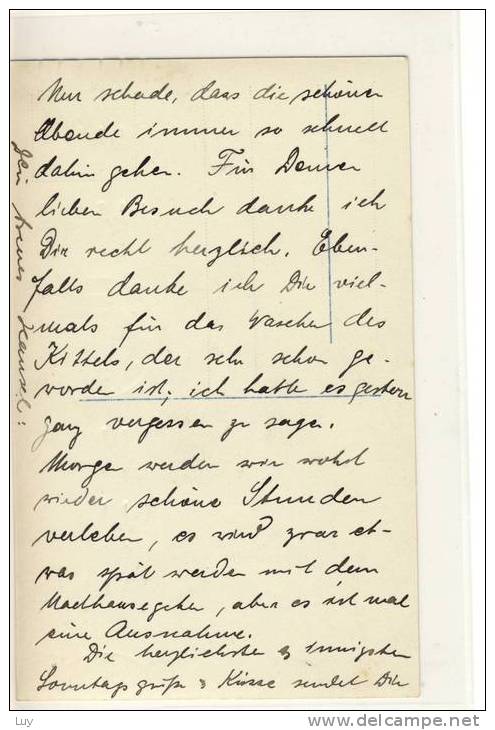 Nur schade, dass die schönen
Abende immer so schnell
dahin gehen. Für Deinen
lieben Besuch danke ich
Dir recht herzlich. Eben-
falls danke ich Dir viel-
mals für das Waschen des
Kittels, der sehr schön ge-
worden ist; ich hatte es gestern
ganz vergessen zu sagen.
Morgen werden wir wohl
wieder schöne Stunden
verleben, es wird zwar et-
was spät werden mit dem
Nachhausegehen, aber es ist mal
eine Ausnahme.
Die herzlichsten & innigsten
Sonntagsgrüße & Küsse sendet Dir
Dein treuer
Luy
delcampe.net